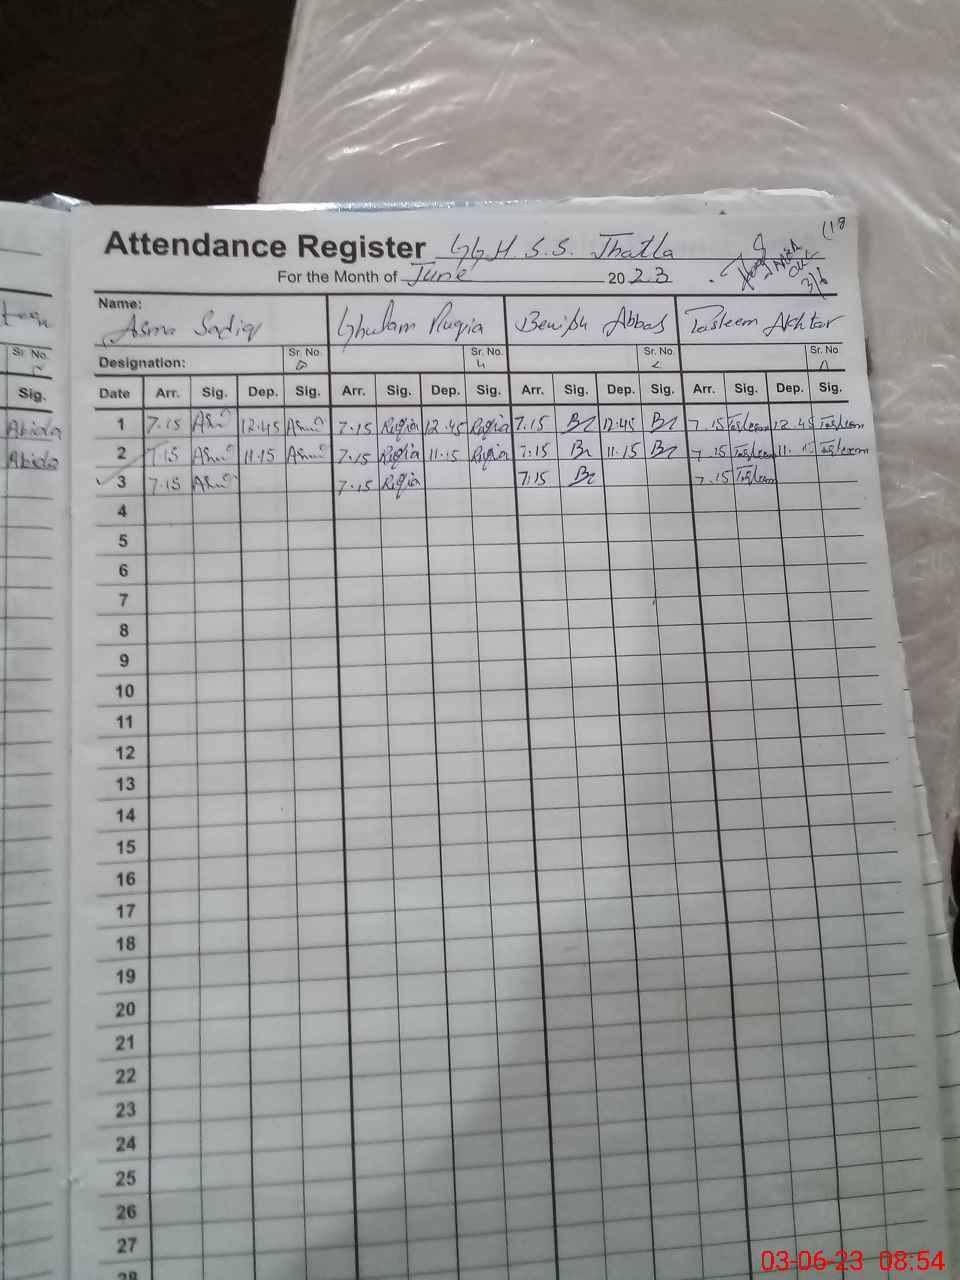 Attendance Register GGH.S.S. Thatla
For the Month of June 2023
(18
3/6
Name:
Asma Sadiq Ghulam Ruqia Benish Abbas Tasleem Akhtar
Designation: Sr. No. Sr. No. Sr. No. Sr. No.
Sr. No.
Sig.
Date Arr. Sig. Dep. Sig. Arr. Sig. Dep. Sig. Arr. Sig. Dep. Sig. Arr. Sig. Dep. Sig.
Abida
1 7.15 12.45 7.15 Ruqia 12.45 Ruqia 7.15 12.45 7.15 Tasleem 12.45 Tasleem
Abida
2 7.15 11.15 7.15 Ruqia 11.15 Ruqia 7.15 11.15 7.15 Tasleem 11. Tasleem
3 7.15 7.15 Ruqia 7.15 7.15 Tasleem
4
5
6
7
8
9
10
11
12
13
14
15
16
17
18
19
20
21
22
23
24
25
26
27
28
03-06-23 08:54